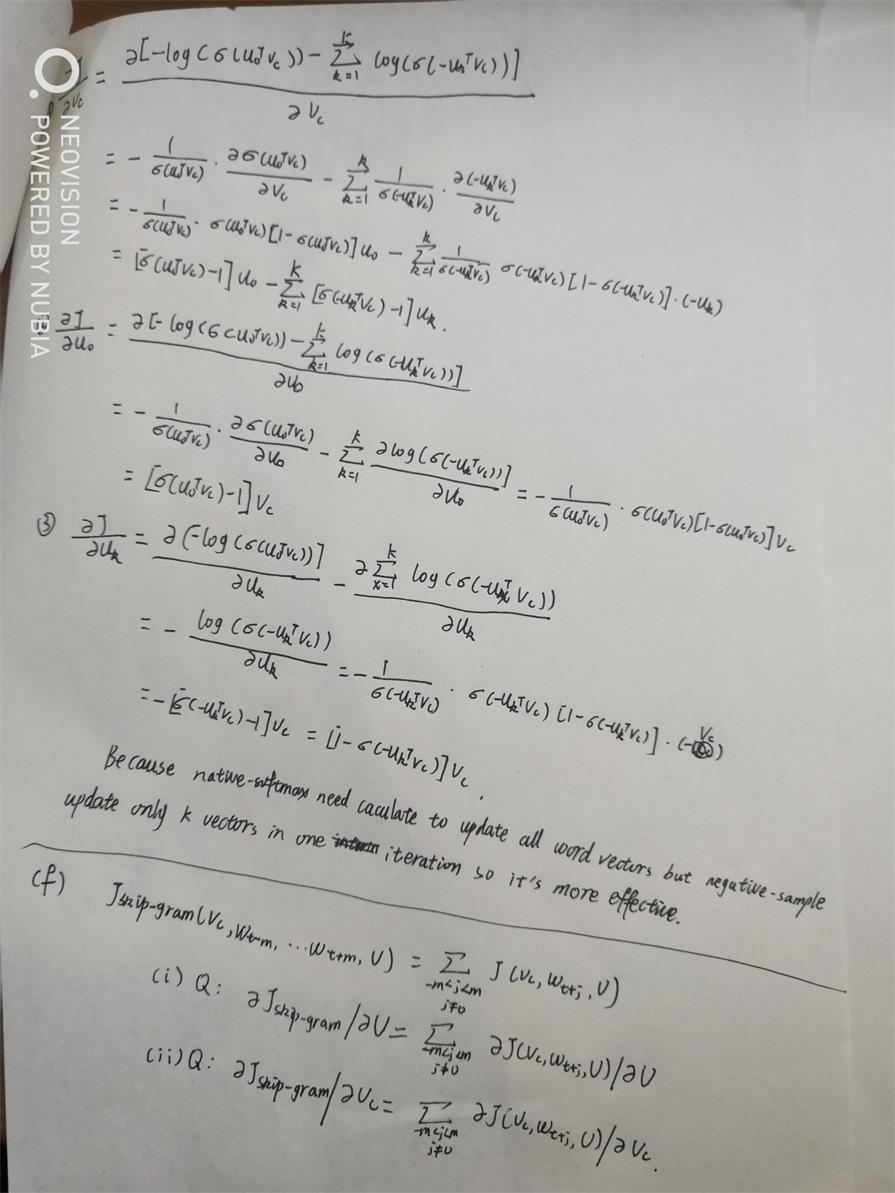 NEOVISION
POWERED BY NUBIA
∂J/∂Vc = ∂[-log(σ(u₀ᵀVc)) - Σ_{k=1}^{k} log(σ(-uₖᵀVc))] / ∂Vc
= - 1/σ(u₀ᵀVc) · ∂σ(u₀ᵀVc)/∂Vc - Σ_{k=1}^{k} 1/σ(-uₖᵀVc) · ∂(-uₖᵀVc)/∂Vc
= - 1/σ(u₀ᵀVc) · σ(u₀ᵀVc)[1-σ(u₀ᵀVc)]u₀ - Σ_{k=1}^{k} 1/σ(-uₖᵀVc) σ(-uₖᵀVc)[1-σ(-uₖᵀVc)]·(-uₖ)
= [σ(u₀ᵀVc)-1]u₀ - Σ_{k=1}^{k} [σ(-uₖᵀVc)-1]uₖ.
∂J/∂u₀ = ∂[-log(σ(u₀ᵀVc)) - Σ_{k=1}^{k} log(σ(-uₖᵀVc))] / ∂u₀
= - 1/σ(u₀ᵀVc) · ∂σ(u₀ᵀVc)/∂u₀ - Σ_{k=1}^{k} ∂log(σ(-uₖᵀVc))]/∂u₀ = - 1/σ(u₀ᵀVc) · σ(u₀ᵀVc)[1-σ(u₀ᵀVc)]Vc
= [σ(u₀ᵀVc)-1]Vc
③ ∂J/∂uₖ = ∂(-log(σ(u₀ᵀVc))]/∂uₖ - ∂Σ_{x=1}^{k} log(σ(-uₓᵀVc))/∂uₖ
= - log(σ(-uₖᵀVc))/∂uₖ = - 1/σ(-uₖᵀVc) · σ(-uₖᵀVc)[1-σ(-uₖᵀVc)]·(-Vc)
= -[σ(-uₖᵀVc)-1]Vc = [1-σ(-uₖᵀVc)]Vc.
Because native-softmax need caculate to update all word vectors but negative-sample
update only k vectors in one iteration so it's more effective.
(f) Jskip-gram(Vc, Wt-m, ...Wt+m, U) = Σ_{-m<j<m, j≠0} J(Vc, Wt+j, U)
(i) Q: ∂Jskip-gram/∂U = Σ_{-m<j<m, j≠0} ∂J(Vc, Wt+j, U)/∂U
(ii) Q: ∂Jskip-gram/∂Vc = Σ_{-m<j<m, j≠0} ∂J(Vc, Wt+j, U)/∂Vc.